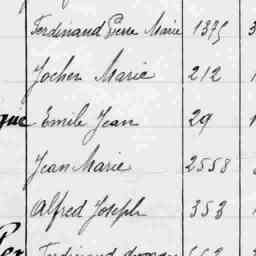 Ferdinand Pierre Marie 1375 3
Jochen Marie 212
Emile Jean 29
Jean Marie 2558
Alfred Joseph 353
Ferdinand